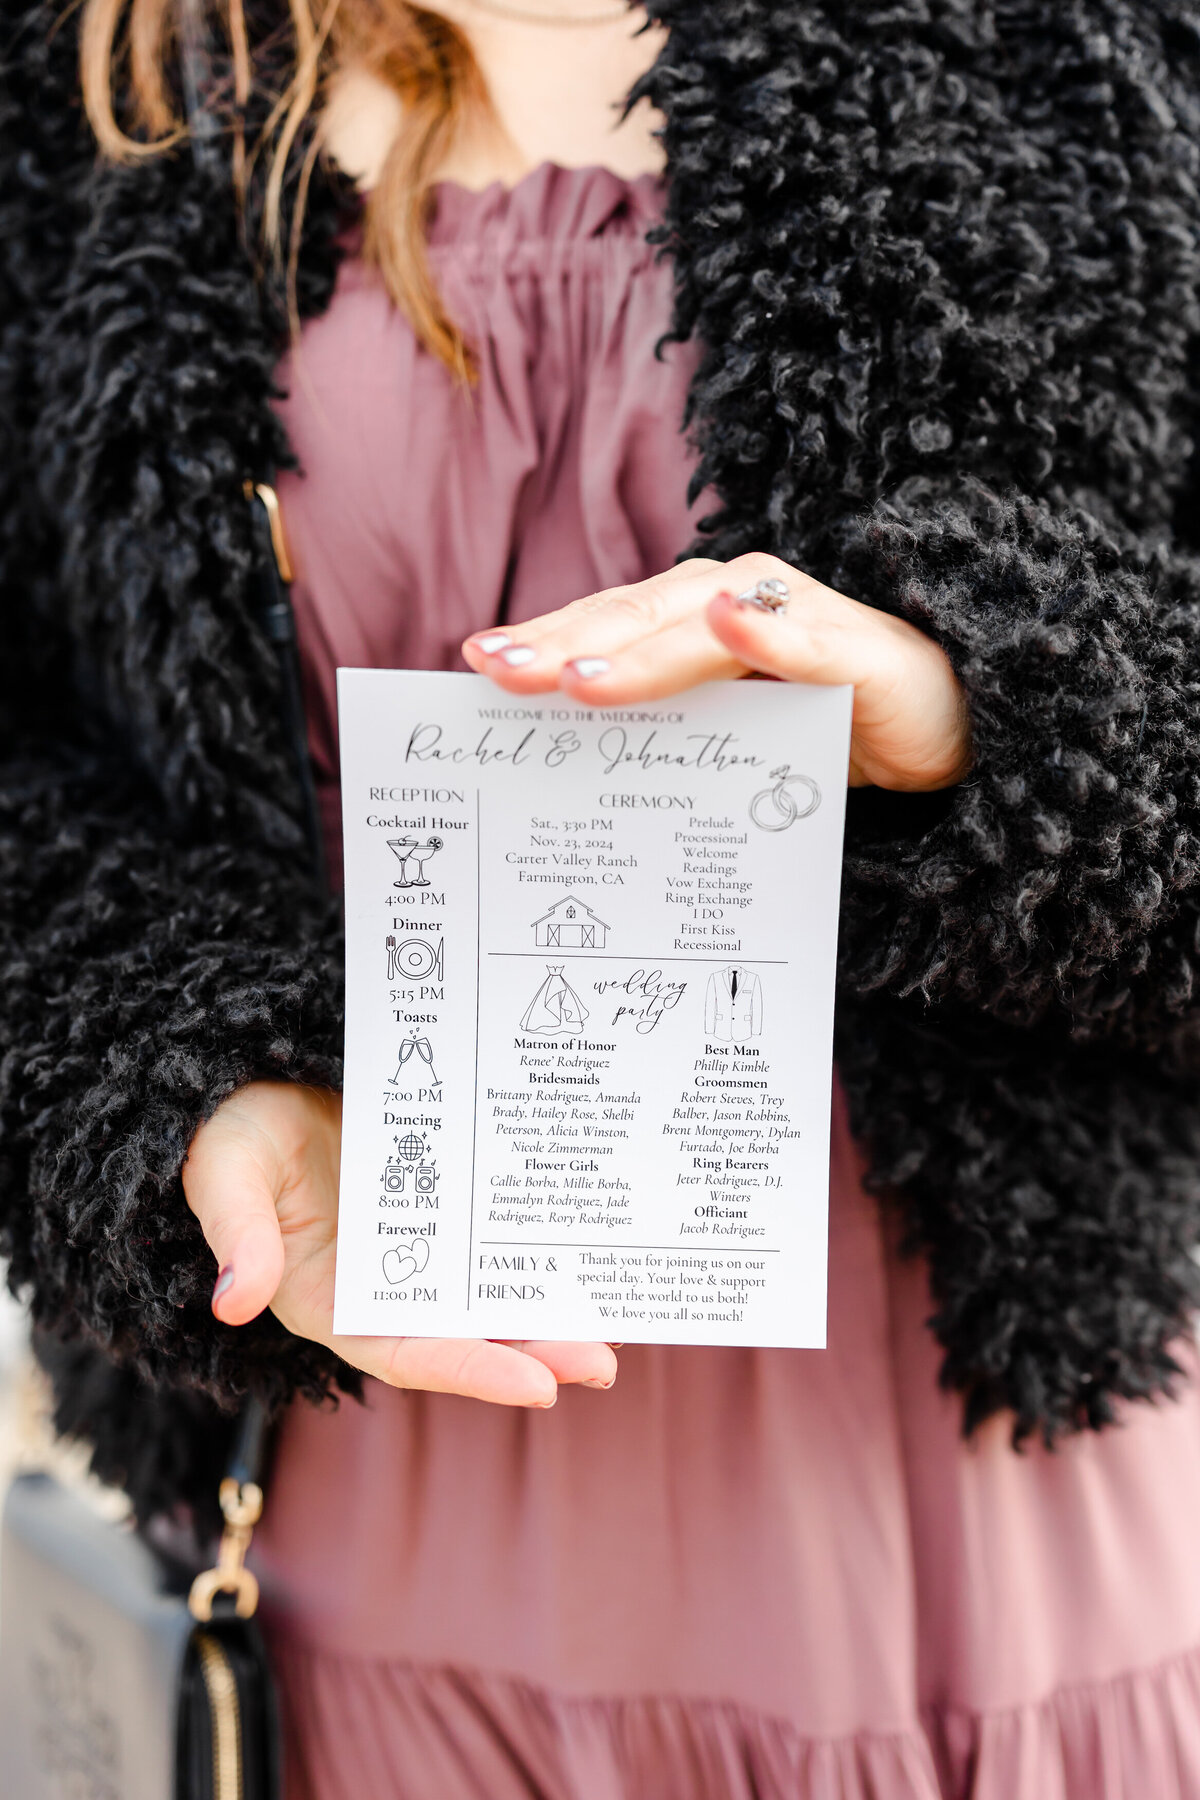 WELCOME TO THE WEDDING OF
Rachel & Johnathon
RECEPTION
Cocktail Hour
4:00 PM
Dinner
5:15 PM
Toasts
7:00 PM
Dancing
8:00 PM
Farewell
11:00 PM
CEREMONY
Sat., 3:30 PM
Nov. 23, 2024
Carter Valley Ranch
Farmington, CA
Prelude
Processional
Welcome
Readings
Vow Exchange
Ring Exchange
I DO
First Kiss
Recessional
wedding
party
Matron of Honor
Renee' Rodriguez
Bridesmaids
Brittany Rodriguez, Amanda
Brady, Hailey Rose, Shelbi
Peterson, Alicia Winston,
Nicole Zimmerman
Flower Girls
Callie Borba, Millie Borba,
Emmalyn Rodriguez, Jade
Rodriguez, Rory Rodriguez
Best Man
Phillip Kimble
Groomsmen
Robert Steves, Trey
Balber, Jason Robbins,
Brent Montgomery, Dylan
Furtado, Joe Borba
Ring Bearers
Jeter Rodriguez, D.J.
Winters
Officiant
Jacob Rodriguez
FAMILY &
FRIENDS
Thank you for joining us on our
special day. Your love & support
mean the world to us both!
We love you all so much!